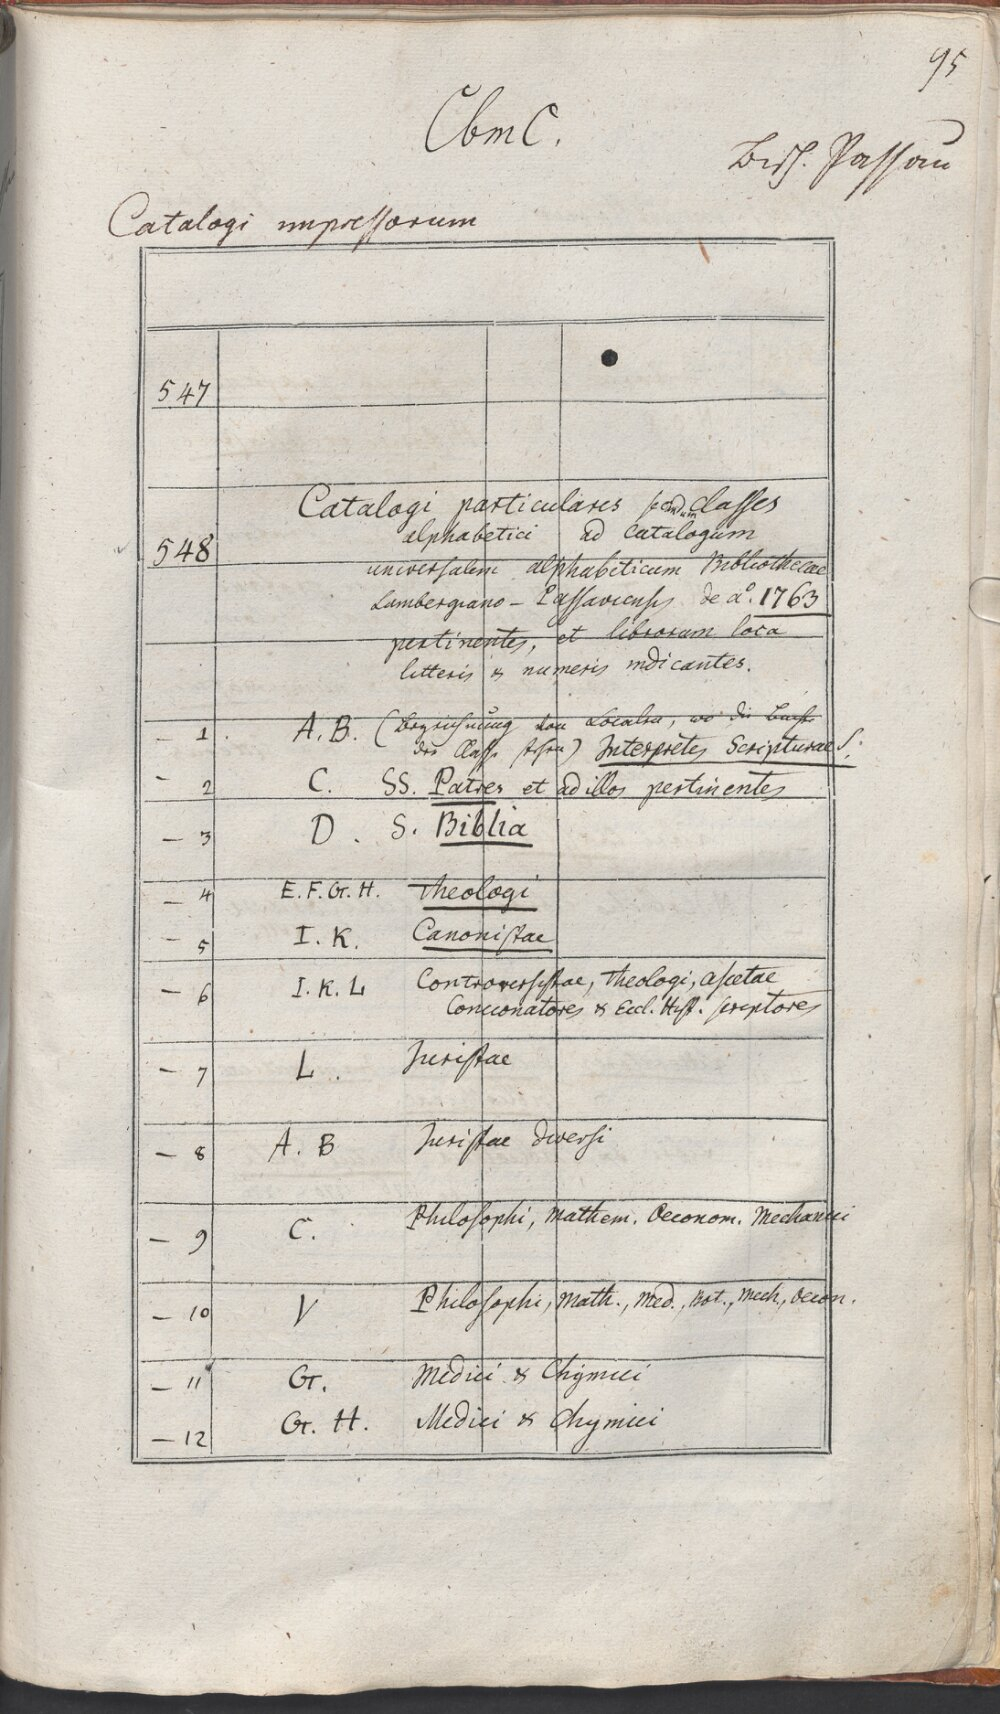 95
Cbm C.
Bisch. Passau
Catalogi impressorum
547
548 Catalogi particulares secundum classes
alphabetici ad catalogum
universalem alphabeticum Bibliothecae
Lambergiano - Passaviensis de aº. 1763
pertinentes, et librorum loca
litteris & numeris indicantes.
- 1 A. B. (Bezeichnung von Localen, wo die
der Classe stehen) Interpretes Scripturae S.
- 2 C. SS. Patres et ad illos pertinentes
- 3 D. S. Biblia
- 4 E. F. G. H. Theologi
- 5 I. K. Canonistae
- 6 I. K. L Controversistae, Theologi, ascetae
Concionatores & Eccl. Hist. scriptores
- 7 L. Juristae
- 8 A. B Juristae diversi
- 9 C. Philosophi, Mathem. Oeconom. Mechanici
- 10 V Philosophi, Math., Med., Bot., Mech., Oecon.
- 11 G. Medici & Chymici
- 12 G. H. Medici & Chymici